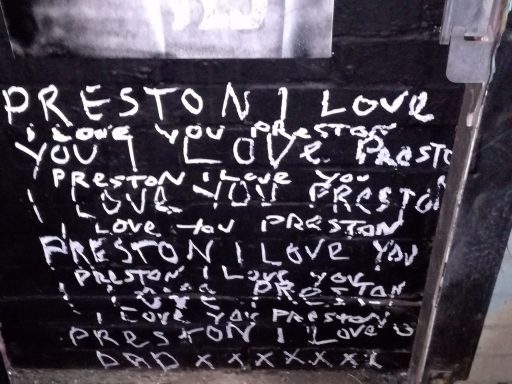 PRESTON I LOVE
i LOVE YOU PRESTON
YOU I LOVE PRESTO
PRESTON I LOVE YOU
I LOVE YOU PRESTON
I LOVE YOU PRESTON
PRESTON I LOVE YOU
PRESTON I LOVE YOU
I LOVE PRESTON
I LOVE YOU PRESTON
PRESTON I LOVE
DAD XXXXXXX